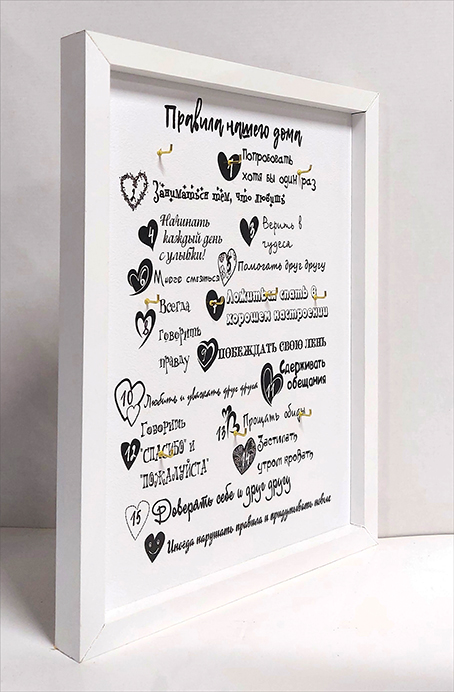 Правила нашего дома
1 Попробовать
хотя бы один раз
Заниматься тем, что любишь
4 Начинать
каждый день
с улыбки!
Верить в
чудеса
Много смеяться
5 Помогать друг другу
8 Всегда
говорить
правду
7 Ложиться спать в
хорошем настроении
9 ПОБЕЖДАТЬ СВОЮ ЛЕНЬ
Сдерживать
обещания
10 Любить и уважать друг друга
12 Говорить
"СПАСИБО" и
"ПОЖАЛУЙСТА"
13 Прощать обиды
Застилать
утром кровать
15 Доверять себе и друг другу
Иногда нарушать правила и придумывать новые